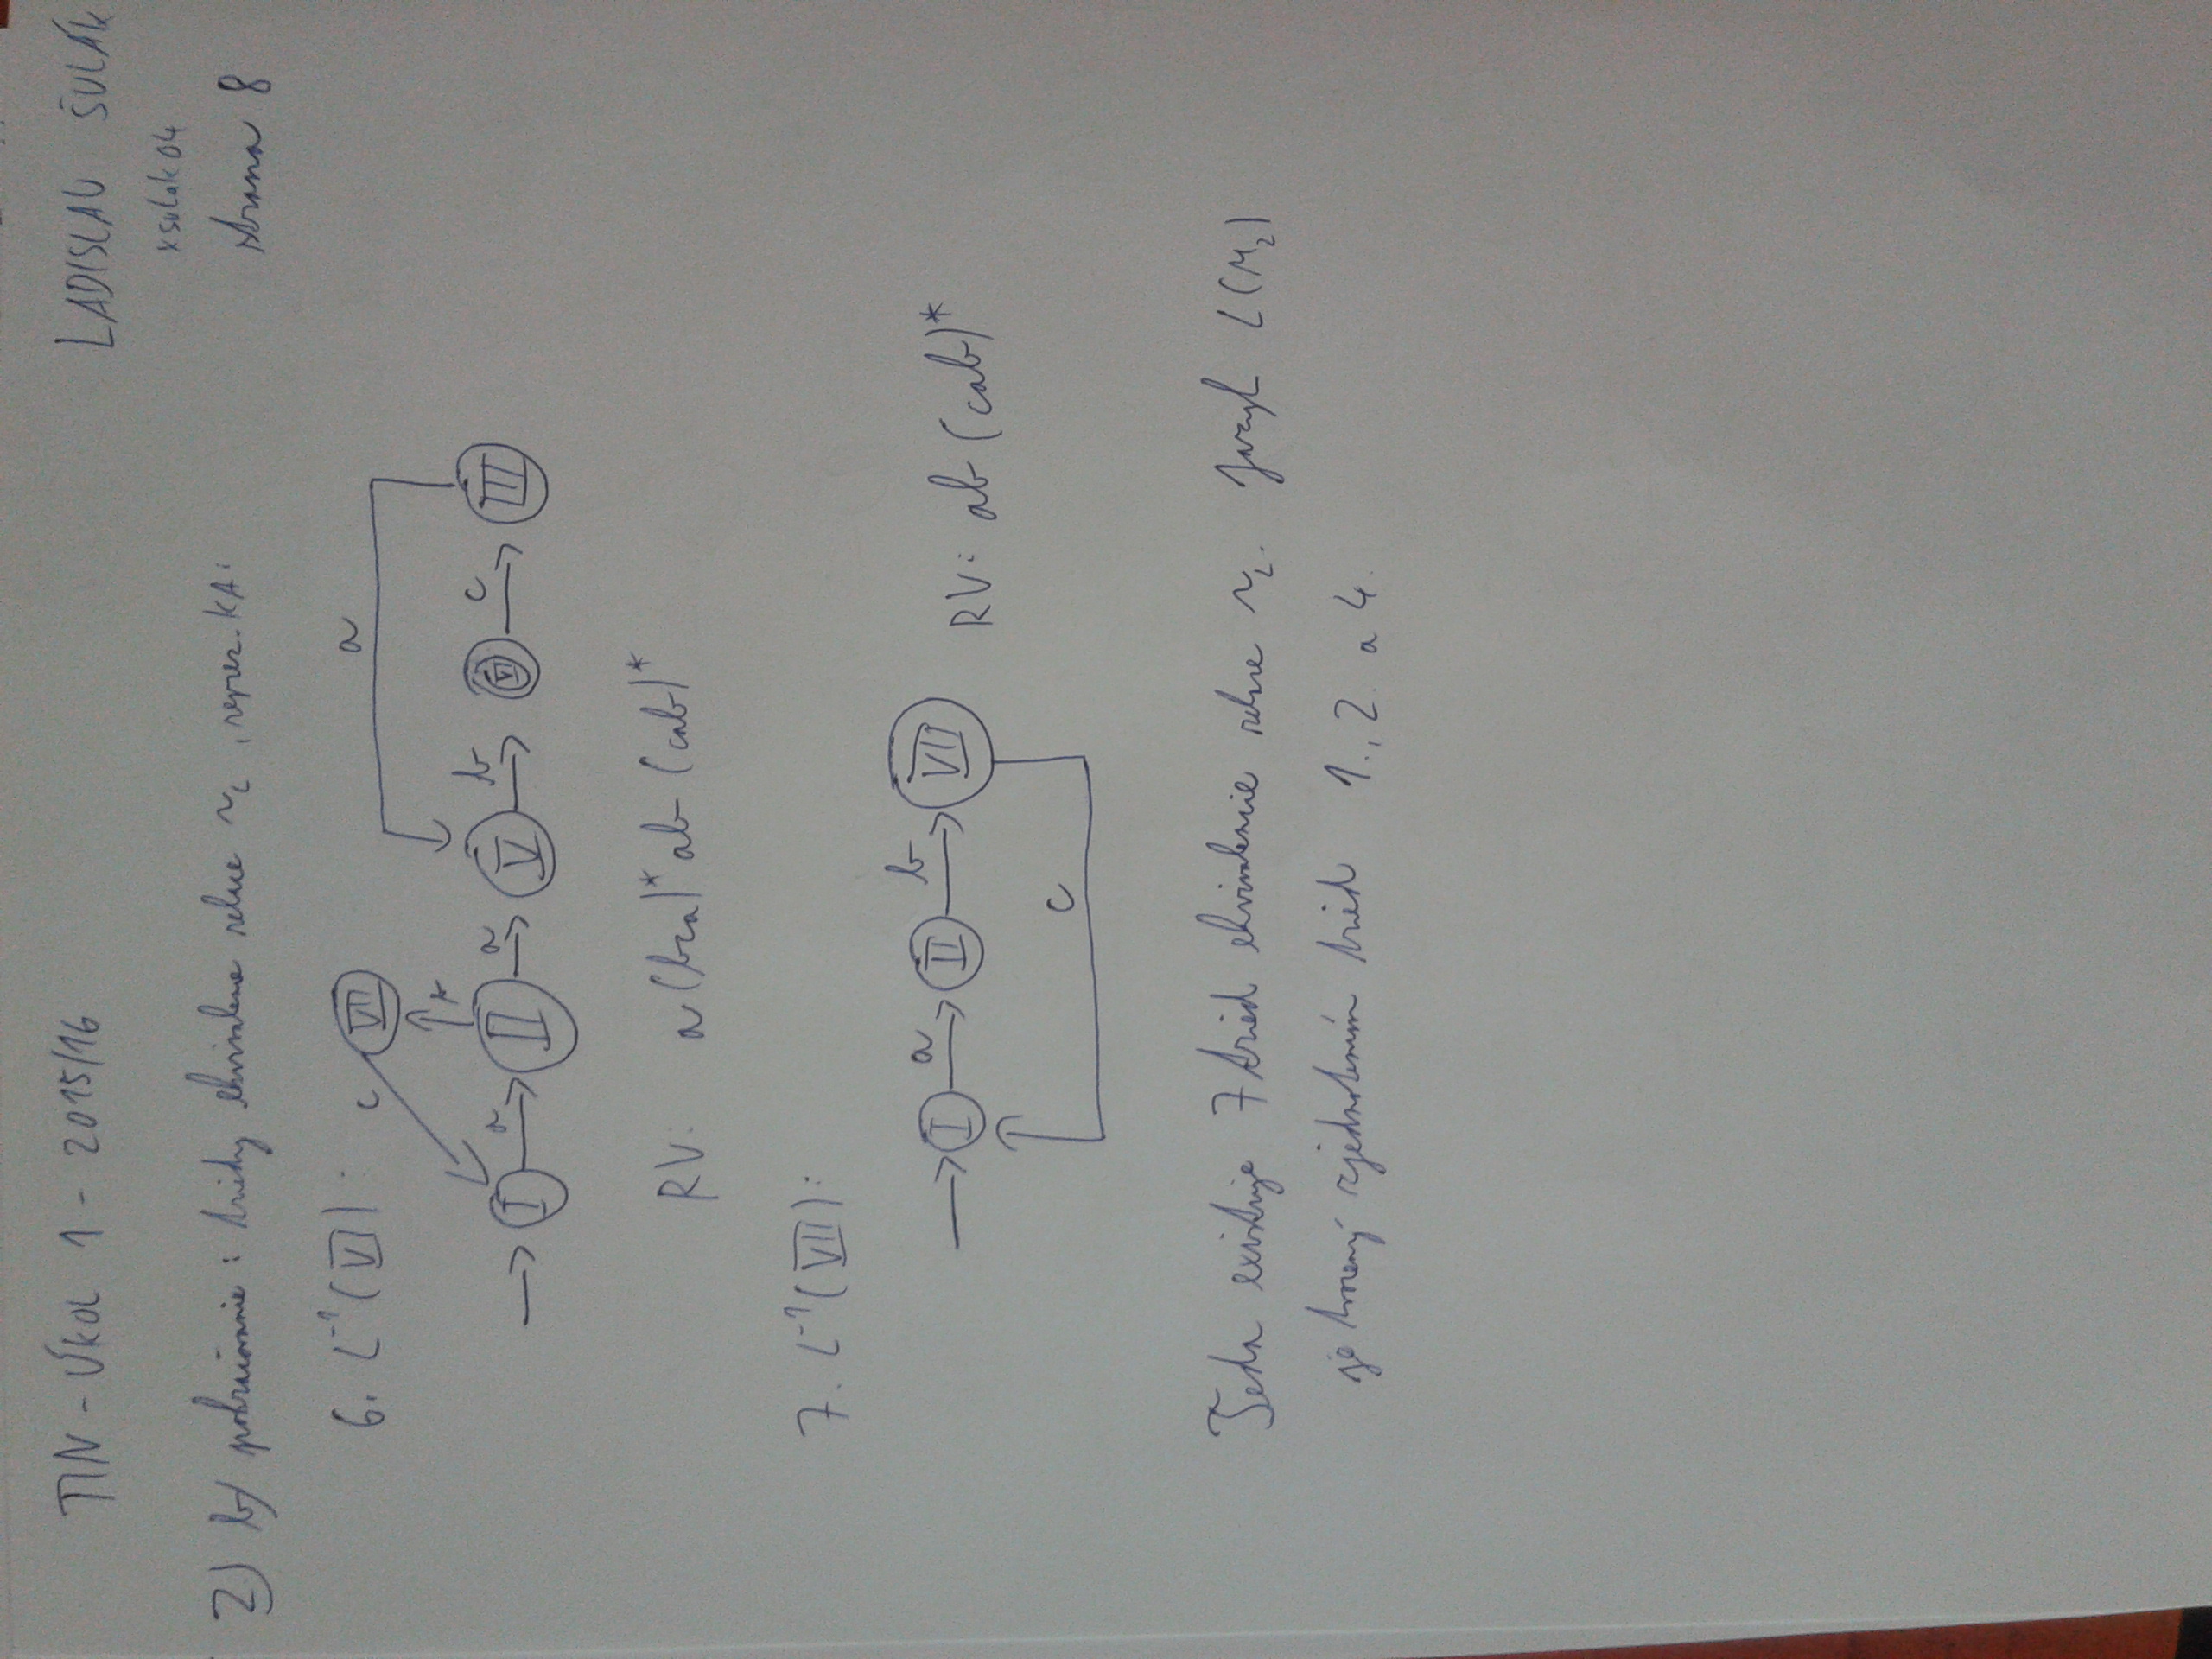 TIN - ÚKOL 1 - 2015/16
LADISLAV ŠULÁK
xsulak04
strana 8
2) b) pokračovanie : triedy ekvivalence relace ~L , reprez. KA:
6. L⁻¹(VI):
c VII a
b
I a II a V b VI c III
RV: a(bca)*ab(cab)*
7. L⁻¹(VII):
I a II b VII
RV: ab(cab)*
c
Teda existuje 7 tried ekvivalencie relace ~L. Jazyk L(M₂)
je tvorený zjednotením tried 1., 2. a 4.